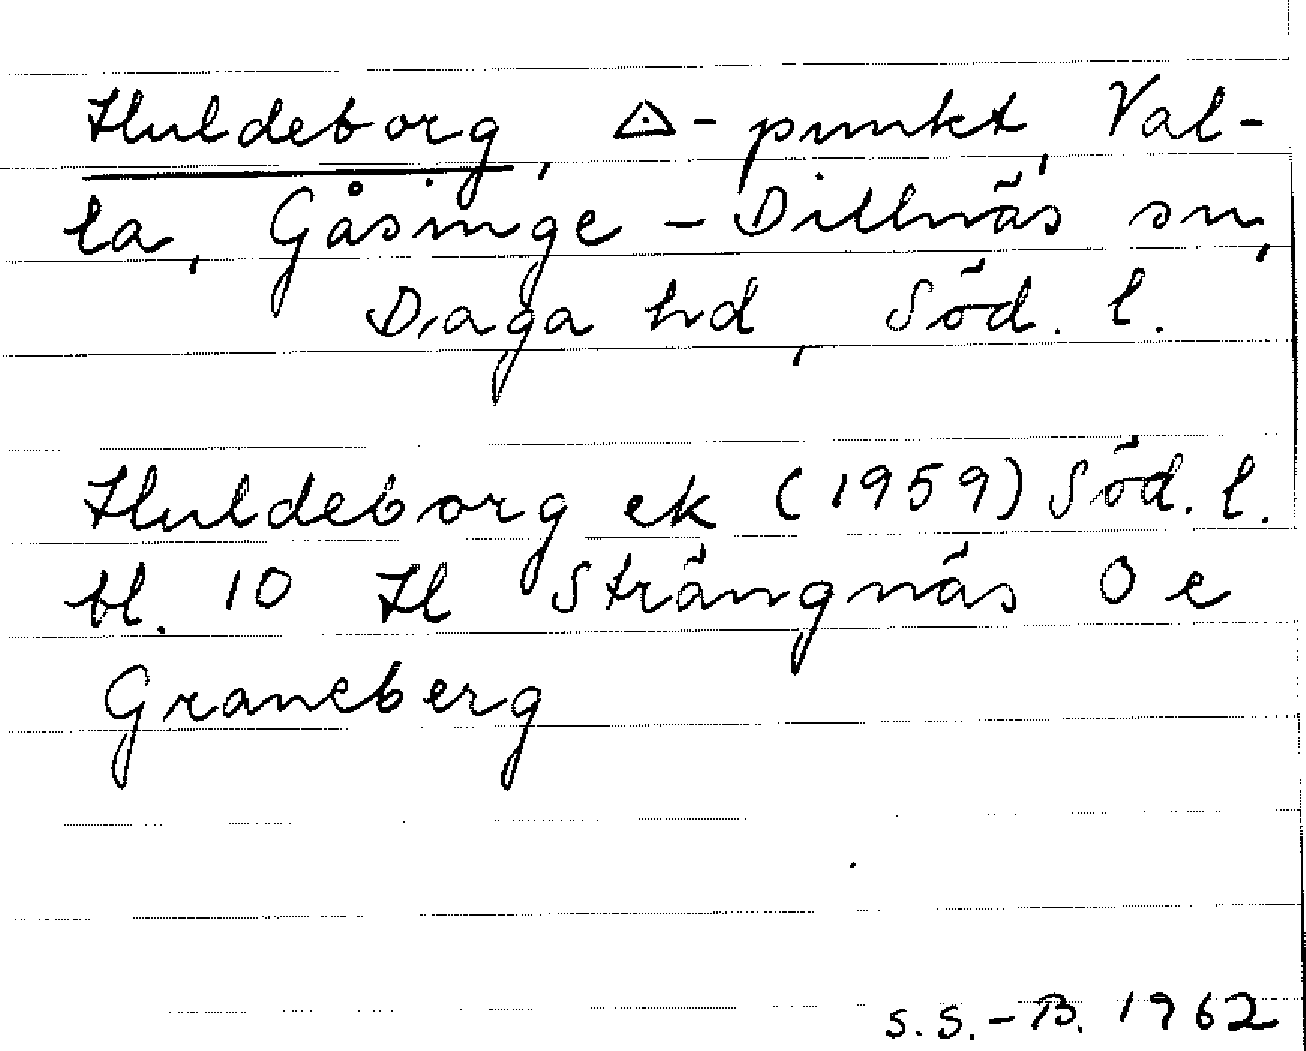 Huldeborg, △-punkt, Val-
la, Gåsinge-Dillnäs sn,
Daga hd, Söd. l.
Huldeborg ek (1959) Söd. l.
bl. 10 H Strängnäs O e
Graneberg
S.S.-B. 1962